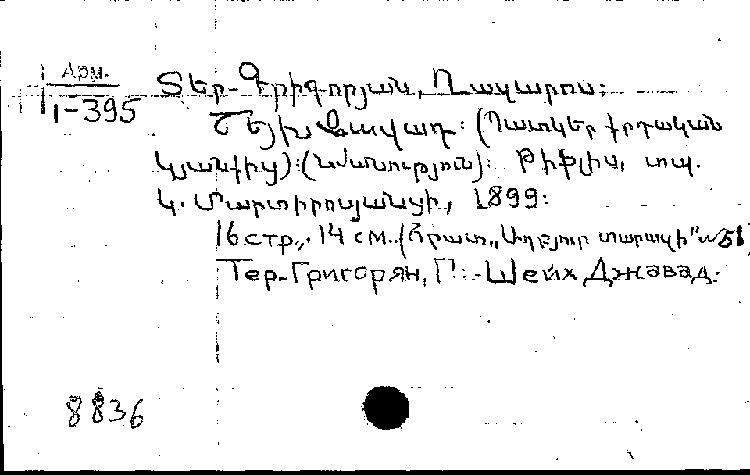 Арм.
1-395
Տեր-Գրիգորյան, Ղազարոս:
Շեյխ Ջավադ: (Պատկեր քրդական
կյանքից): (Նմանություն): Թիֆլիս, տպ.
Կ. Մարտիրոսյանցի, 1899:
16 стр., 14 см. (Հրատ. „Աղբյուր տարազի" № 51
Тер-Григорян, Г. :-Шейх Джавад.
8836